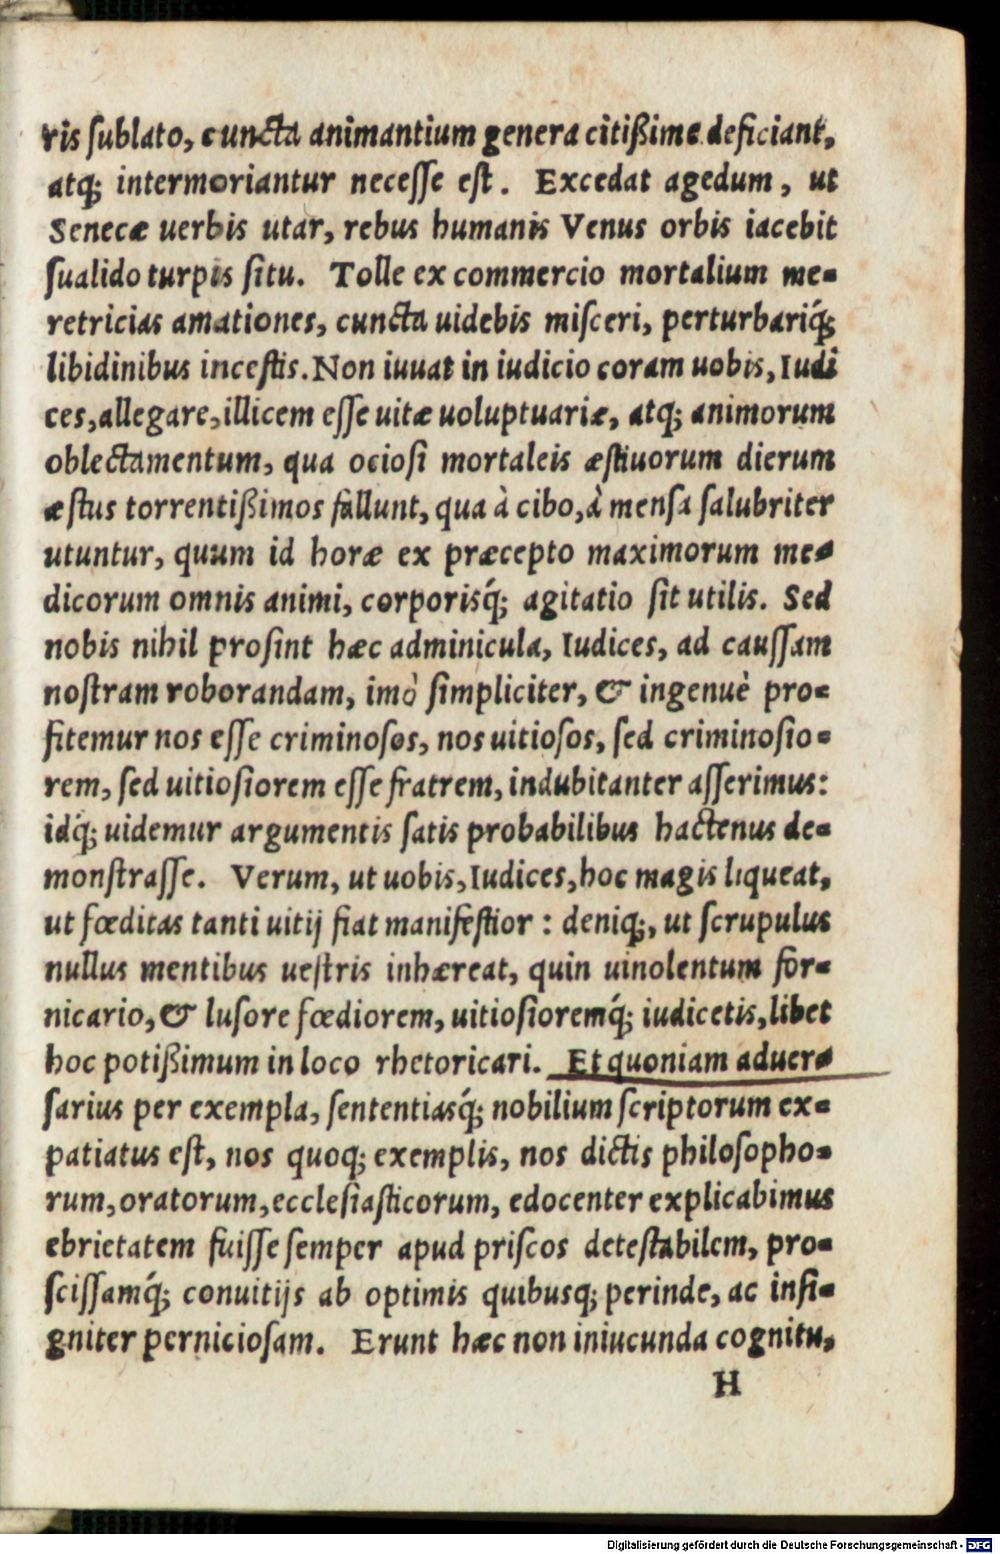 ris ſublato, cuncta animantium genera citißime deficiant,
atq; intermoriantur neceſſe eſt. Excedat agedum, ut
Senecæ uerbis utar, rebus humanis Venus orbis iacebit
ſualido turpis ſitu. Tolle ex commercio mortalium me-
retricias amationes, cuncta uidebis miſceri, perturbariq́;
libidinibus inceſtis. Non iuuat in iudicio coram uobis, Iudi
ces, allegare, illicem eſſe uitæ uoluptuariæ, atq; animorum
oblectamentum, qua ocioſi mortaleis æſtiuorum dierum
æſtus torrentißimos fallunt, qua à cibo, à menſa ſalubriter
utuntur, quum id horæ ex præcepto maximorum me-
dicorum omnis animi, corporisq́; agitatio ſit utilis. Sed
nobis nihil proſint hæc adminicula, Iudices, ad cauſſam
noſtram roborandam, imò ſimpliciter, & ingenuè pro-
fitemur nos eſſe criminoſos, nos uitioſos, ſed criminoſio-
rem, ſed uitioſiorem eſſe fratrem, indubitanter aſſerimus:
idq́; uidemur argumentis ſatis probabilibus hactenus de-
monſtraſſe. Verum, ut uobis, Iudices, hoc magis liqueat,
ut fœditas tanti uitij fiat manifeſtior : deniq;, ut ſcrupulus
nullus mentibus ueſtris inhæreat, quin uinolentum for-
nicario, & luſore fœdiorem, uitioſioremq́; iudicetis, libet
hoc potißimum in loco rhetoricari. Et quoniam aduer-
ſarius per exempla, ſententiasq́; nobilium ſcriptorum ex-
patiatus eſt, nos quoq; exemplis, nos dictis philoſopho-
rum, oratorum, eccleſiaſticorum, edocenter explicabimus
ebrietatem fuiſſe ſemper apud priſcos deteſtabilem, pro-
ſciſſamq́; conuitijs ab optimis quibusq; perinde, ac inſi-
gniter pernicioſam. Erunt hæc non iniucunda cognitu,
H
Digitalisierung gefördert durch die Deutsche Forschungsgemeinschaft - DFG